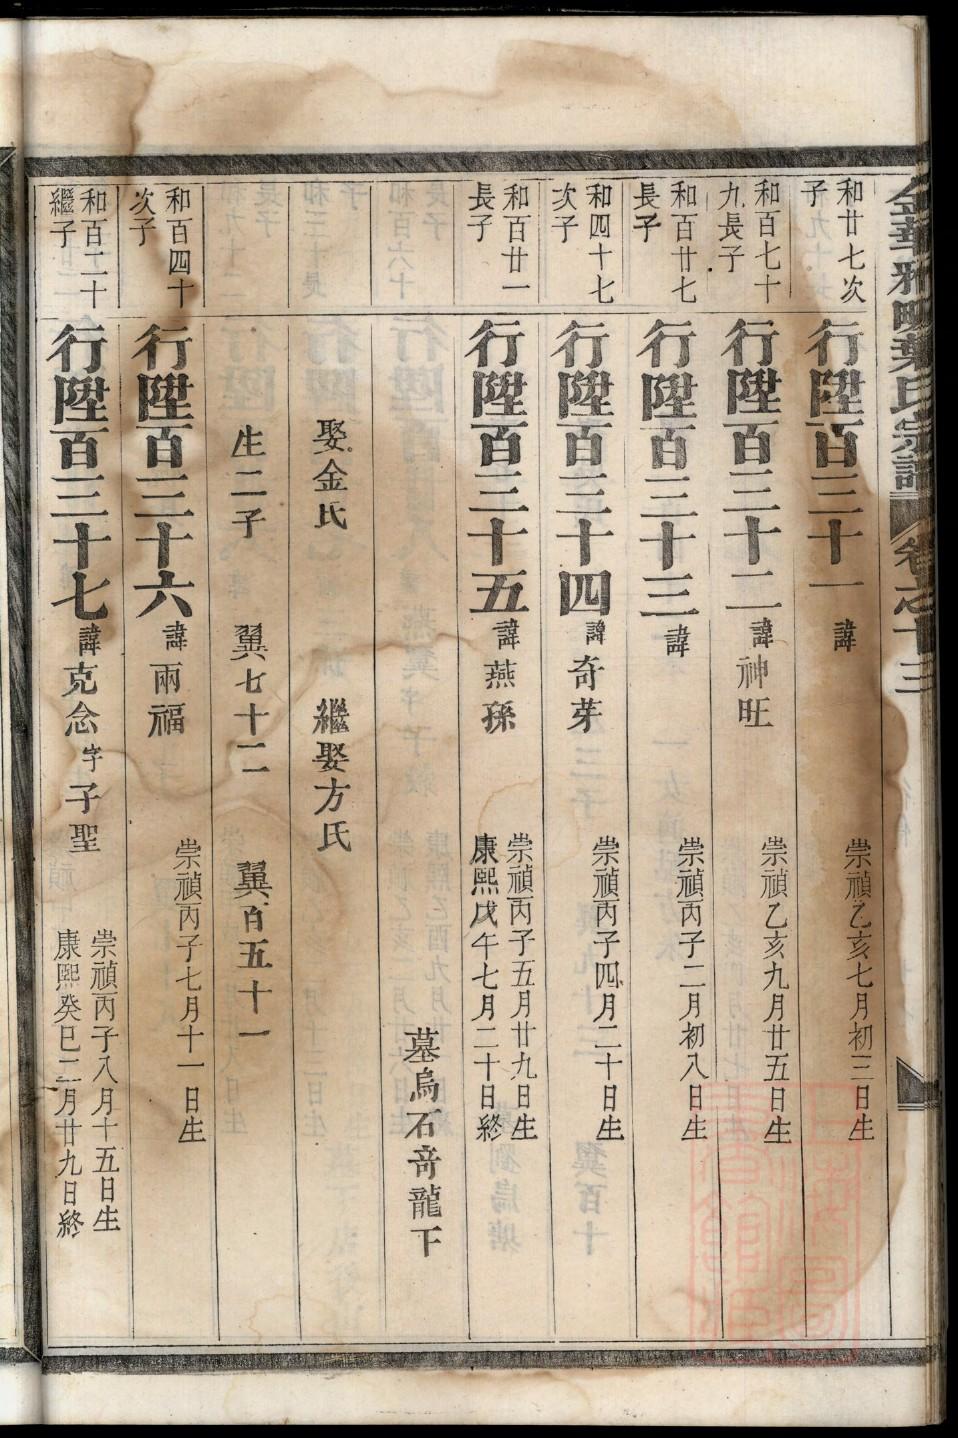 金華雅畈葉氏宗譜 卷之十三
和廿七次子
行陞百三十一 諱 崇禎乙亥七月初三日生
和百七十九長子
行陞百三十二 諱神旺 崇禎乙亥九月廿五日生
和百廿七長子
行陞百三十三 諱 崇禎丙子二月初八日生
和四十七次子
行陞百三十四 諱奇芽 崇禎丙子四月二十日生
和百廿一長子
行陞百三十五 諱燕孫 崇禎丙子五月廿九日生
康熙戊午七月二十日終
墓烏石竒龍下
娶金氏 繼娶方氏
生二子 翼七十二 翼百五十一
和百四十次子
行陞百三十六 諱兩福 崇禎丙子七月十一日生
和百二十繼子
行陞百三十七 諱克念字子聖 崇禎丙子八月十五日生
康熙癸巳二月廿九日終